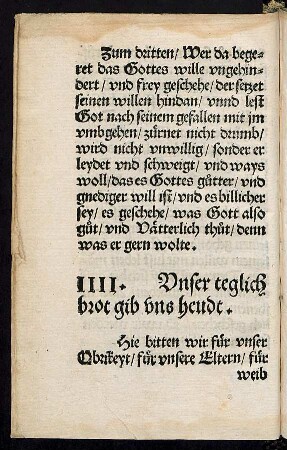 Zum dritten/ Wer da bege-
ret das Gottes wille vngehin-
dert/ vnd frey geschehe/ der setzet
seinen willen hindan/ vnnd lest
Got nach seinem gefallen mit jm
vmbgehen/ zürnet nicht drumb/
wird nicht vnwillig/ sonder er
leydet vnd schweigt/ vnd ways
woll/ das es Gottes gůtter/ vnd
gnediger will ist/ vnd es billicher
sey/ es geschehe/ was Gott also
gůt/ vnd Vätterlich thůt/ denn
was er gern wolte.
IIII. Vnser teglich
brot gib vns heudt.
Hie bitten wir für vnser
Obrikeyt/ für vnsere Eltern/ für
weib